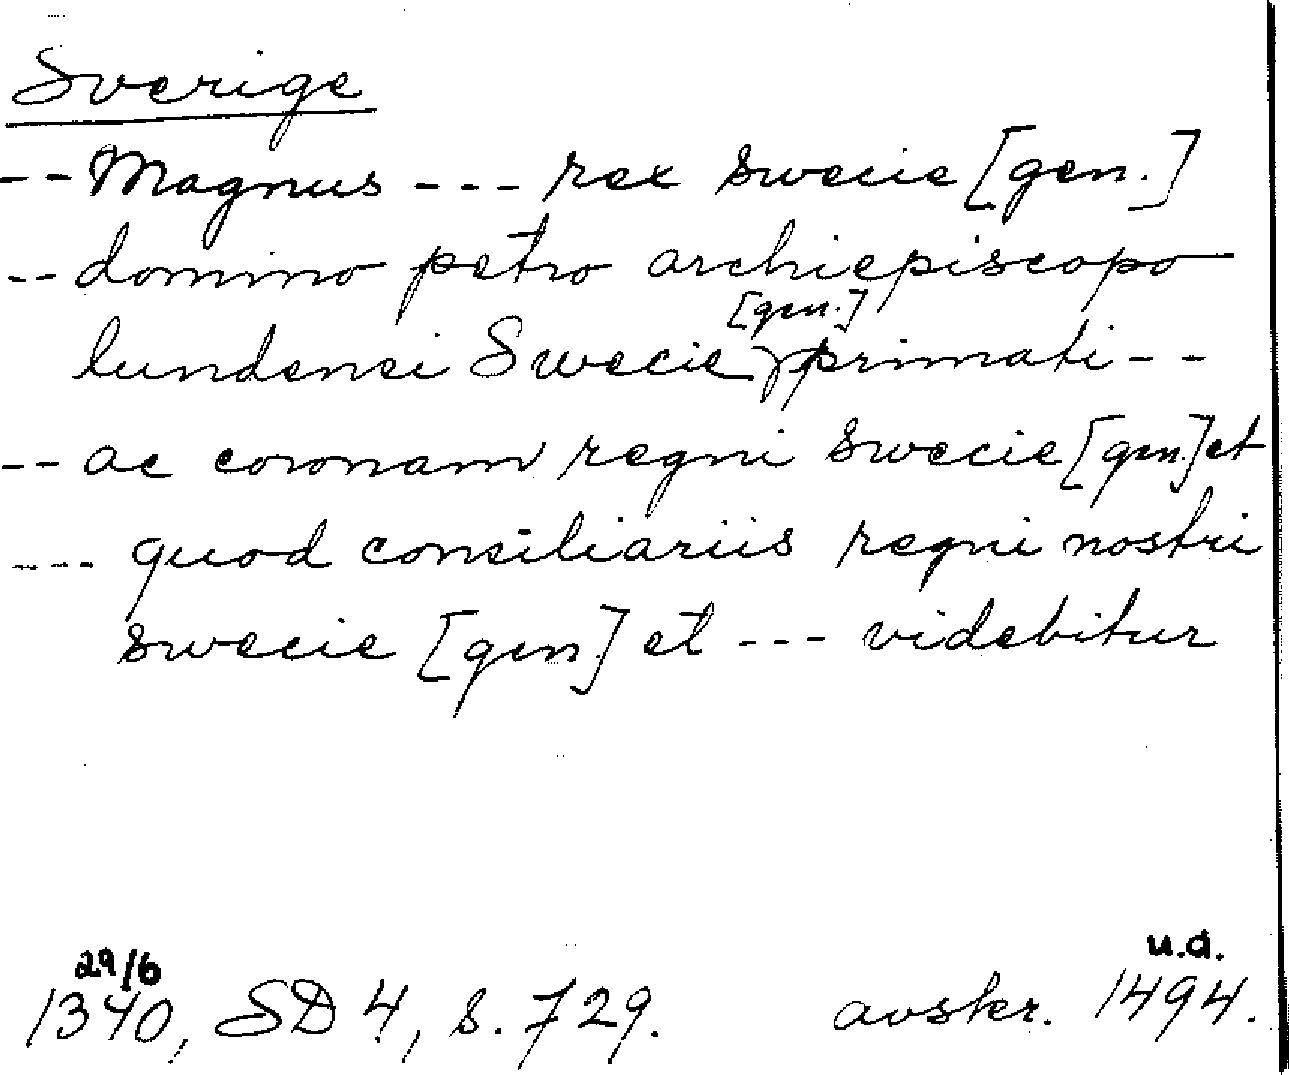 Sverige
-- Magnus --- rex swecie [gen.]
-- domino petro archiepiscopo
[gen.]
lundensi Swecie primati --
-- ac coronam regni swecie [gen.] et
--- quod consiliariis regni nostri
swecie [gen] et --- videbitur
29/6
u.a.
1340, SD 4, s. 729. avskr. 1494.